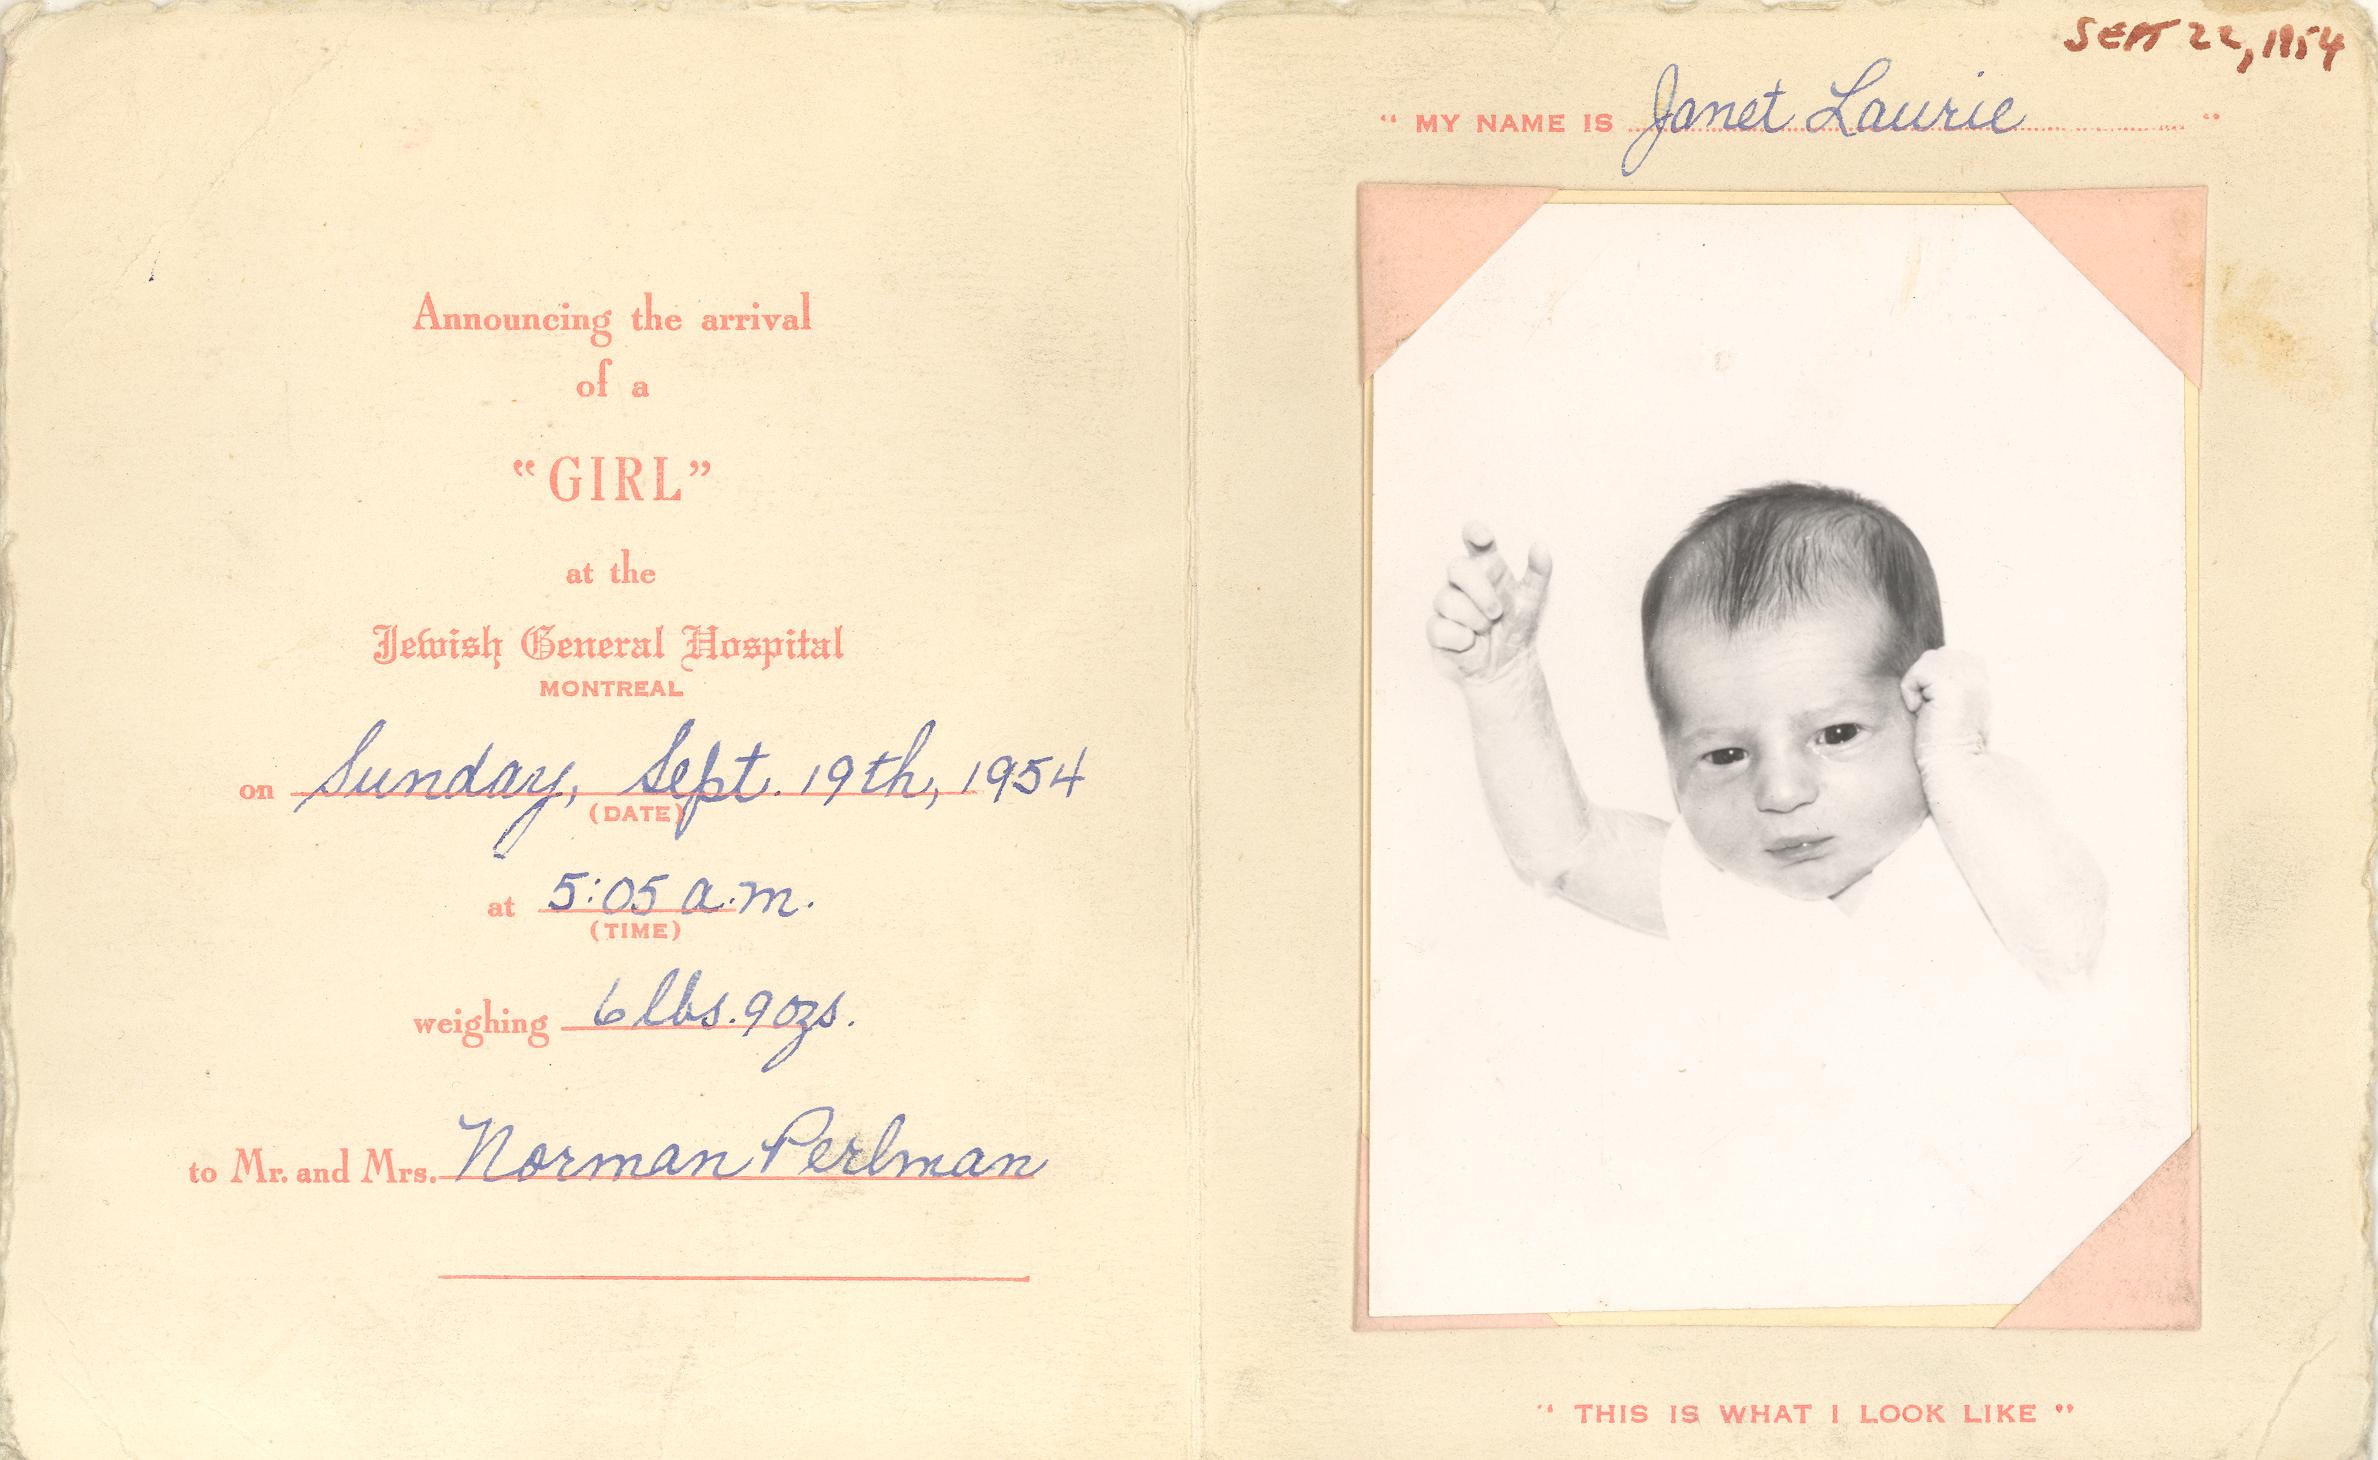 Announcing the arrival
of a
“GIRL”
at the
Jewish General Hospital
MONTREAL
on Sunday, Sept. 19th, 1954
(DATE)
at 5:05 a.m.
(TIME)
weighing 6 lbs. 9 ozs.
to Mr. and Mrs. Norman Perlman
SEPT 22, 1954
“ MY NAME IS Janet Laurie ”
“ THIS IS WHAT I LOOK LIKE ”